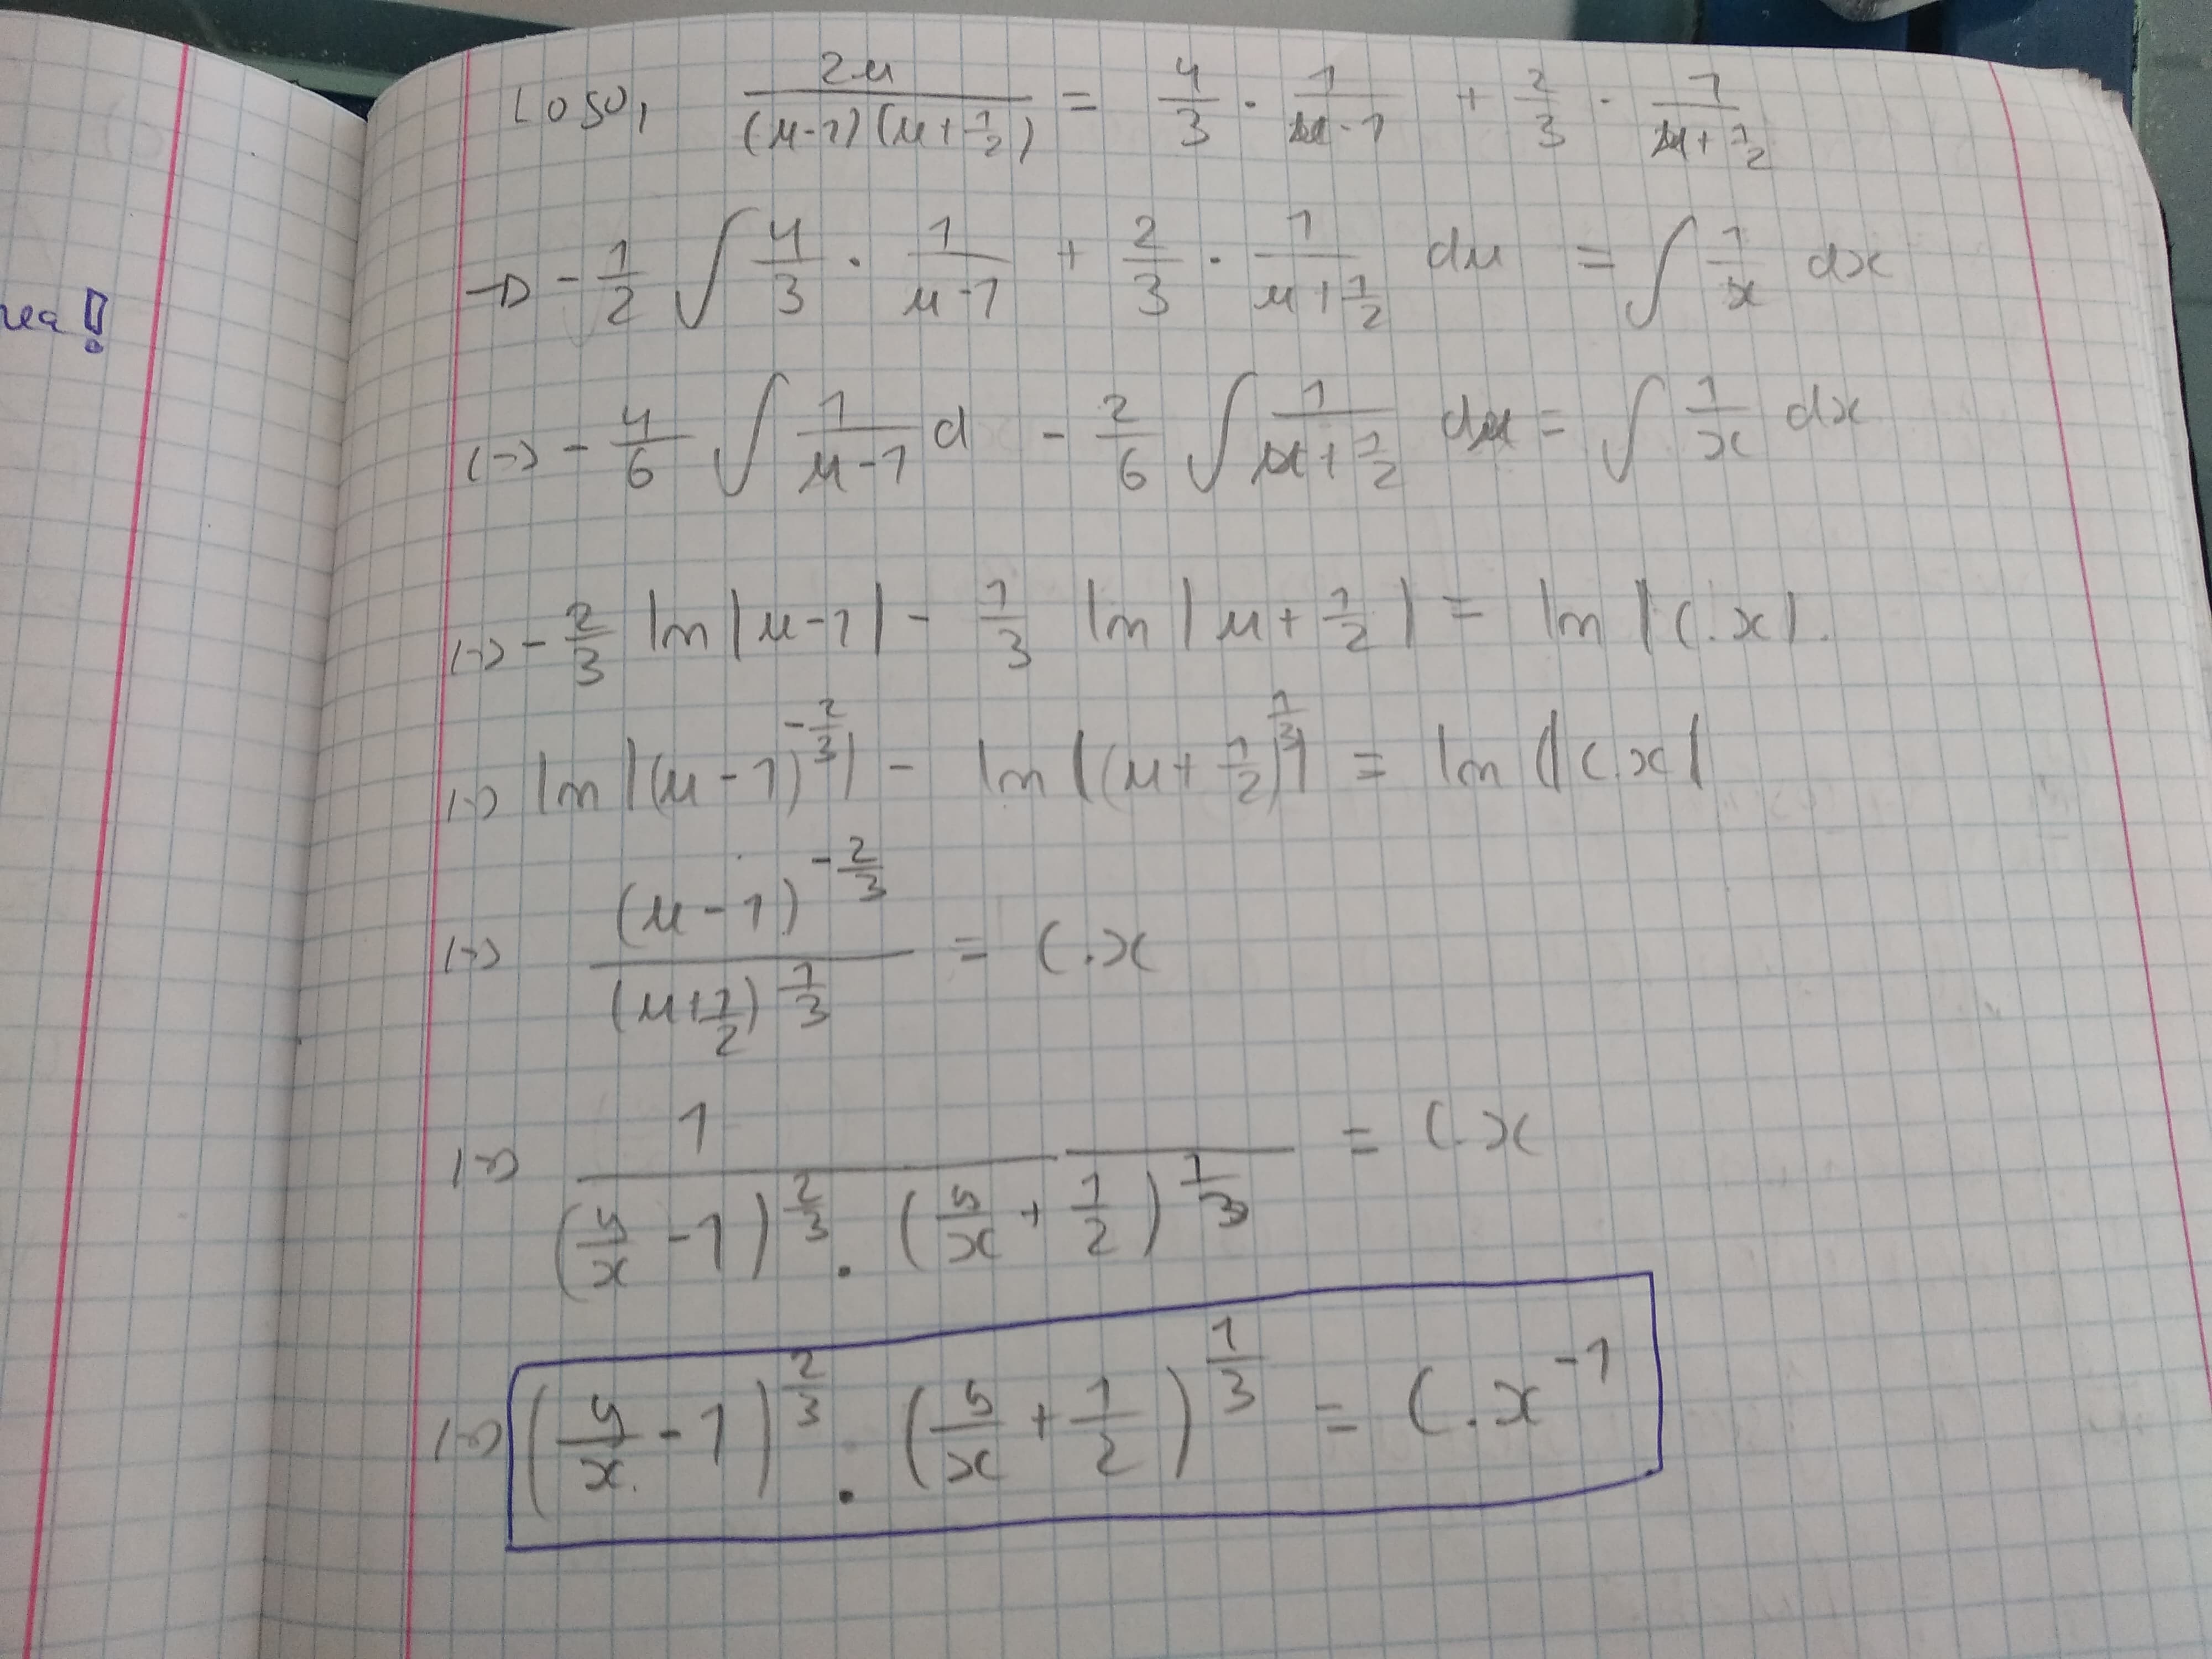 nea!
Logo, \frac{2u}{(u-1)(u+\frac{1}{2})} = \frac{4}{3} \cdot \frac{1}{u-1} + \frac{2}{3} \cdot \frac{1}{u+\frac{1}{2}}
→ -\frac{1}{2} ∫ \frac{4}{3} \cdot \frac{1}{u-1} + \frac{2}{3} \cdot \frac{1}{u+\frac{1}{2}} du = ∫ \frac{1}{x} dx
(=) -\frac{4}{6} ∫ \frac{1}{u-1} d - \frac{2}{6} ∫ \frac{1}{u+\frac{1}{2}} du = ∫ \frac{1}{x} dx
(=) -\frac{2}{3} ln|u-1| - \frac{1}{3} ln|u+\frac{1}{2}| = ln|C.x|.
(=) ln|(u-1)^{-\frac{2}{3}}| - ln|(u+\frac{1}{2})^{\frac{1}{3}}| = ln(|C.x|
(=) \frac{(u-1)^{-\frac{2}{3}}}{(u+\frac{1}{2})^{\frac{1}{3}}} = C.x
(=) \frac{1}{(\frac{y}{x}-1)^{\frac{2}{3}} . (\frac{y}{x}+\frac{1}{2})^{\frac{1}{3}}} = C.x
(=) (\frac{y}{x}-1)^{\frac{2}{3}} . (\frac{y}{x}+\frac{1}{2})^{\frac{1}{3}} = C.x^{-1}